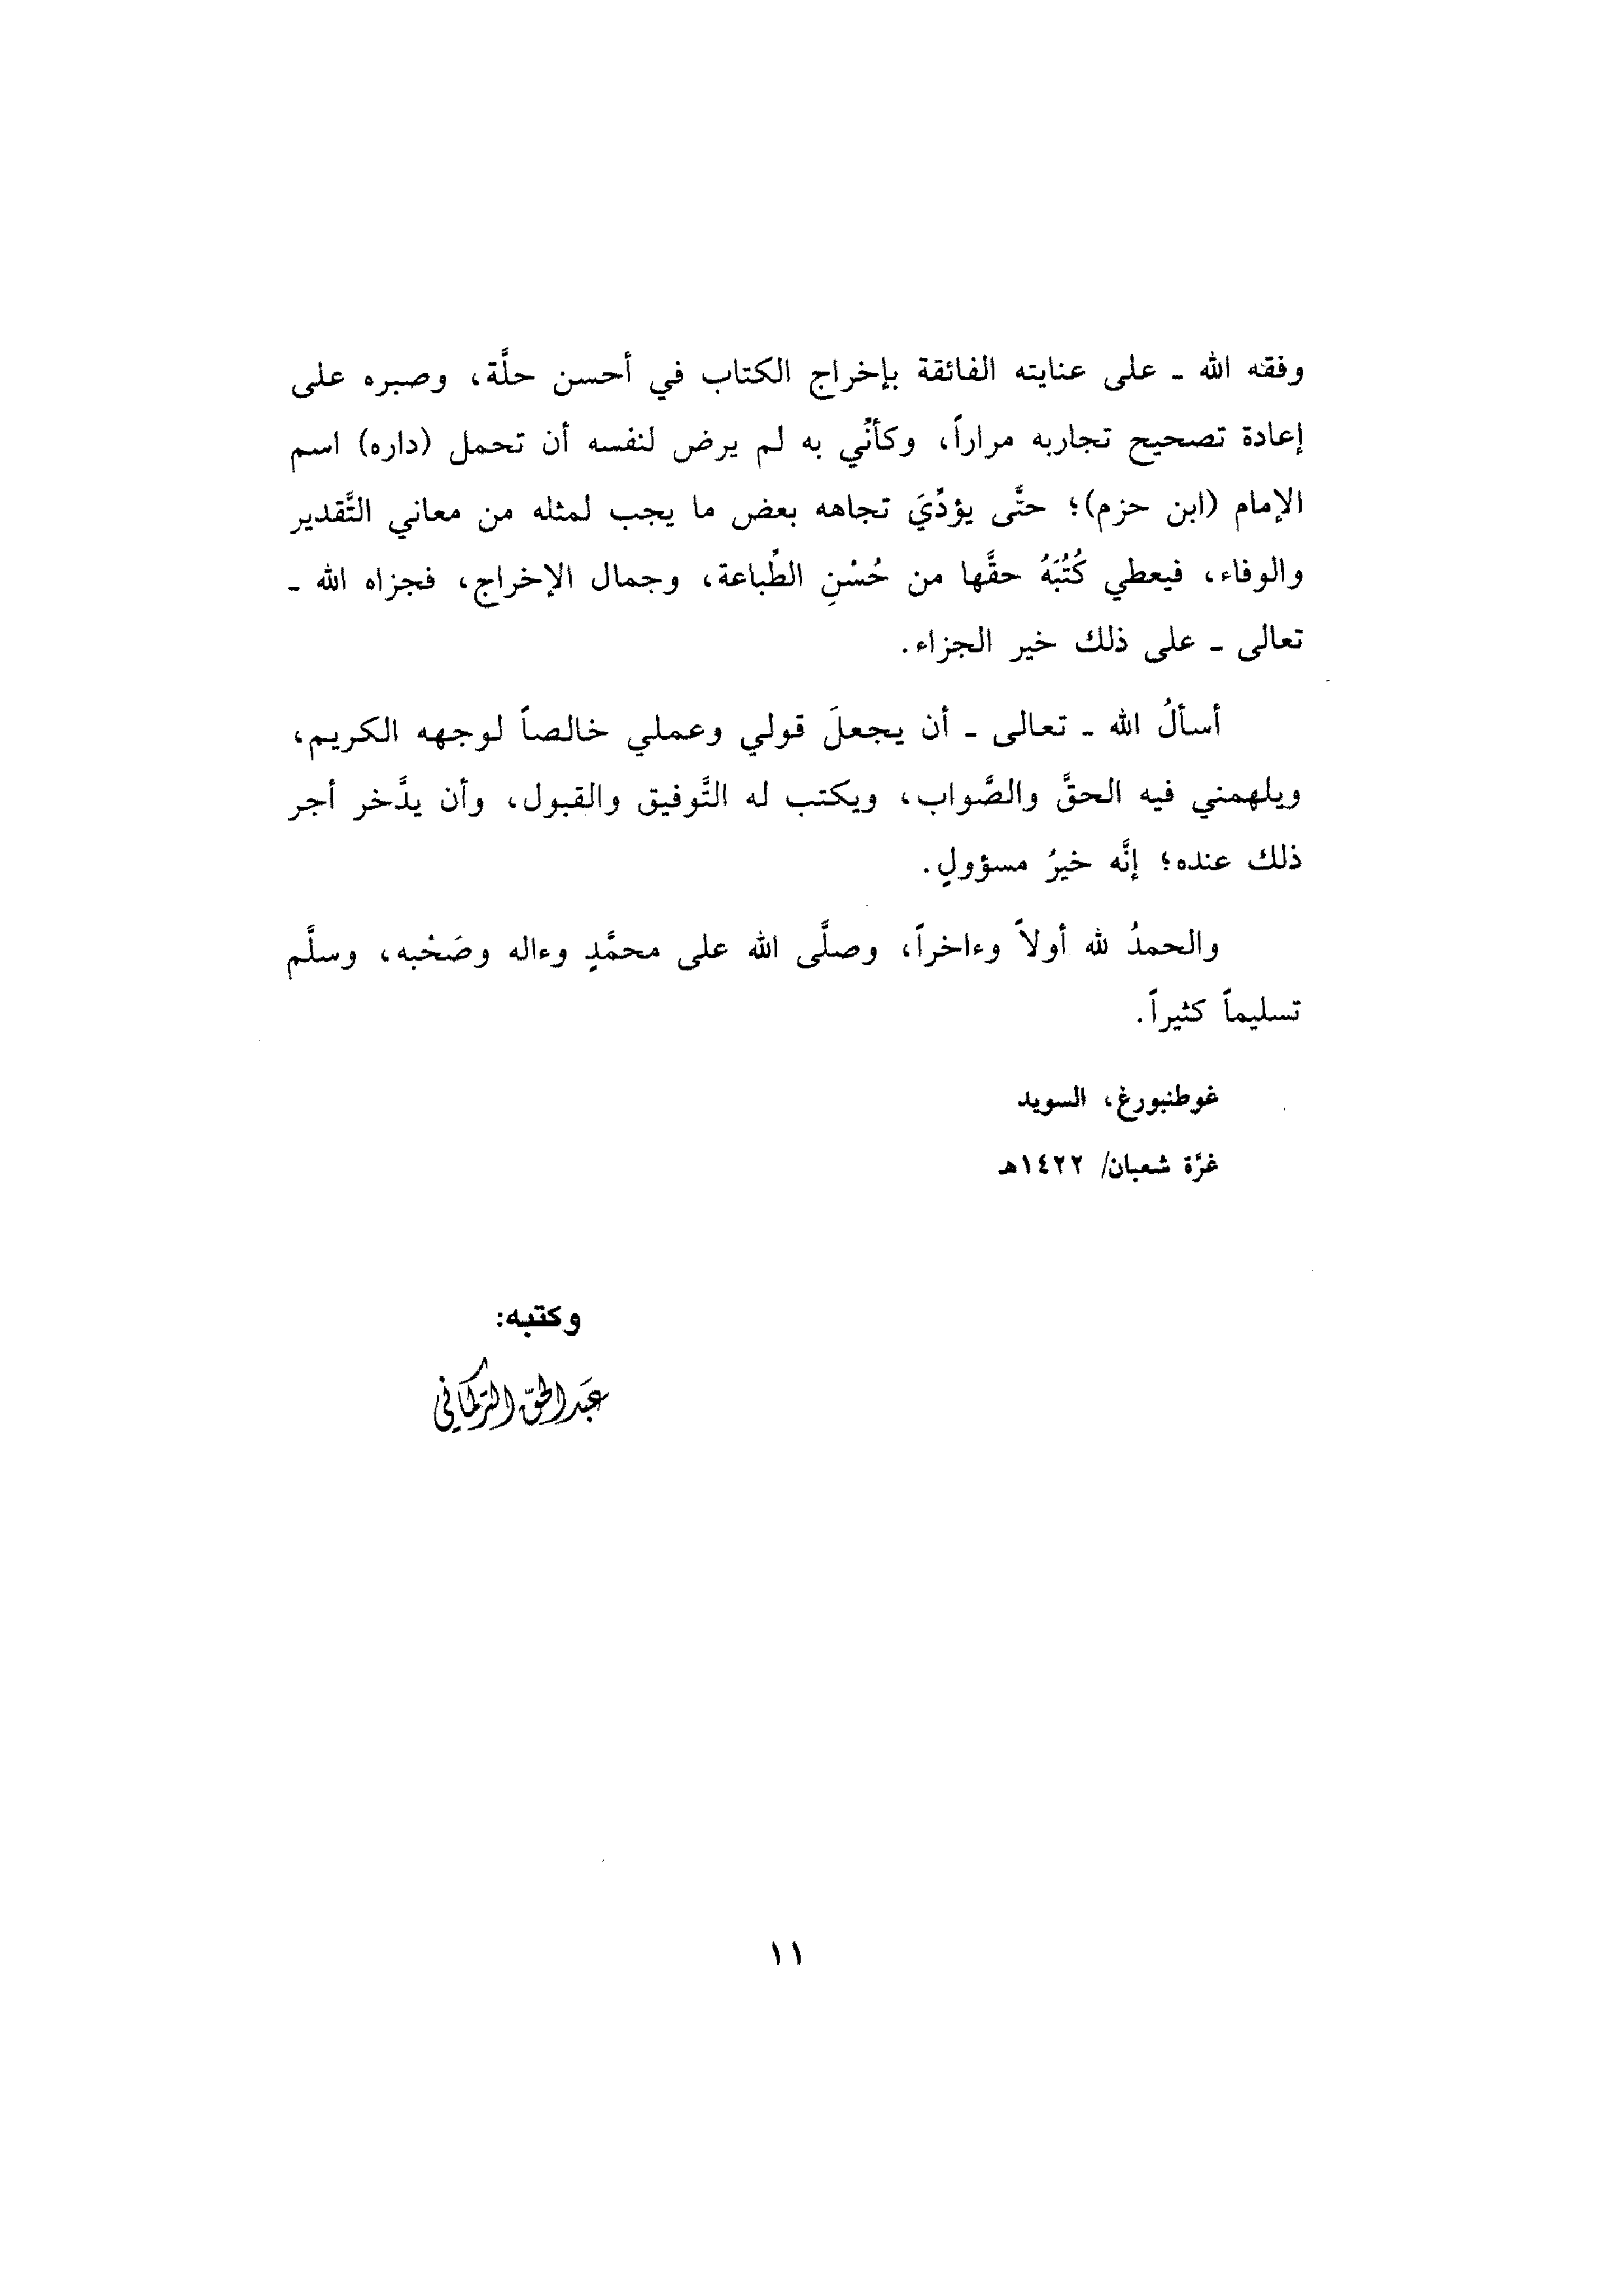 وفقه الله ـ على عنايته الفائقة بإخراج الكتاب في أحسن حلَّة، وصبره على
إعادة تصحيح تجاربه مراراً، وكأنِّي به لم يرض لنفسه أن تحمل (داره) اسم
الإمام (ابن حزم)؛ حتَّى يؤدِّيَ تجاهه بعض ما يجب لمثله من معاني التَّقدير
والوفاء، فيعطي كُتُبَهُ حقَّها من حُسْنِ الطِّباعة، وجمال الإخراج، فجزاه الله ـ
تعالى ـ على ذلك خير الجزاء.
أسألُ الله ـ تعالى ـ أن يجعلَ قولي وعملي خالصاً لوجهه الكريم،
ويلهمني فيه الحقَّ والصَّواب، ويكتب له التَّوفيق والقبول، وأن يدَّخر أجر
ذلك عنده؛ إنَّه خيرُ مسؤولٍ.
والحمدُ لله أولاً وءاخراً، وصلَّى الله على محمَّدٍ وءاله وصَحْبه، وسلَّم
تسليماً كثيراً.
غوطنبورغ، السويد
غرَّة شعبان/ ١٤٢٢هـ
وكتبه:
عَبد الحقّ التركماني
١١